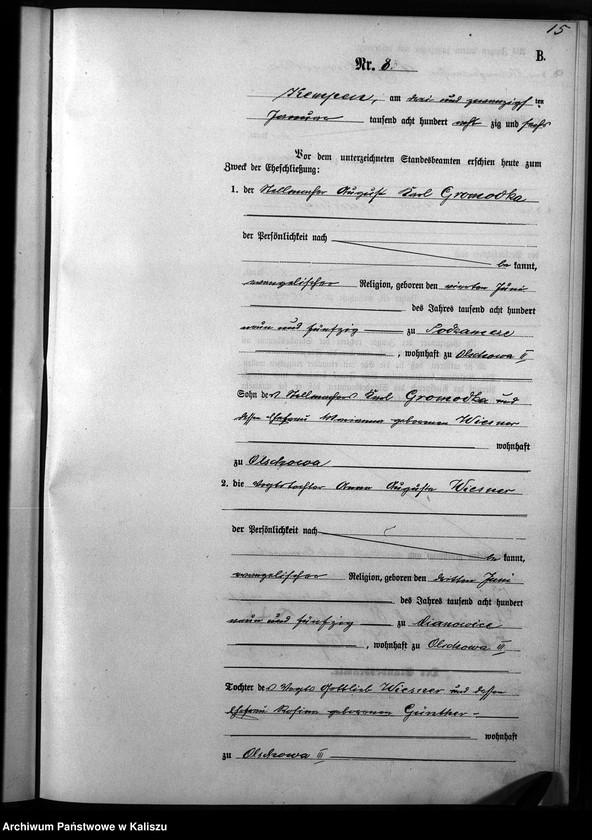 15
B.
Nr. 8
Kempen, am drei und zwanzigsten
Januar tausend acht hundert acht zig und sechs
Vor dem unterzeichneten Standesbeamten erschien heute zum
Zweck der Eheschließung:
1. der Stellmacher August Karl Gromodka
der Persönlichkeit nach
be kannt,
evangelischer Religion, geboren den vierten Juni
des Jahres tausend acht hundert
neun und fünfzig zu Podzamcze
, wohnhaft zu Olschowa II
Sohn des Stellmachers Karl Gromodka und
dessen Ehefrau Marianna geborenen Wiesner
wohnhaft
zu Olschowa
2. die Vogtstochter Anna Auguste Wiesner
der Persönlichkeit nach
be kannt,
evangelischer Religion, geboren den dritten Juni
des Jahres tausend acht hundert
neun und fünfzig zu Mianowice
, wohnhaft zu Olschowa III
Tochter des Vogts Gottlieb Wiesner und dessen
Ehefrau Rosina geborenen Günther
wohnhaft
zu Olschowa III
Archiwum Państwowe w Kaliszu